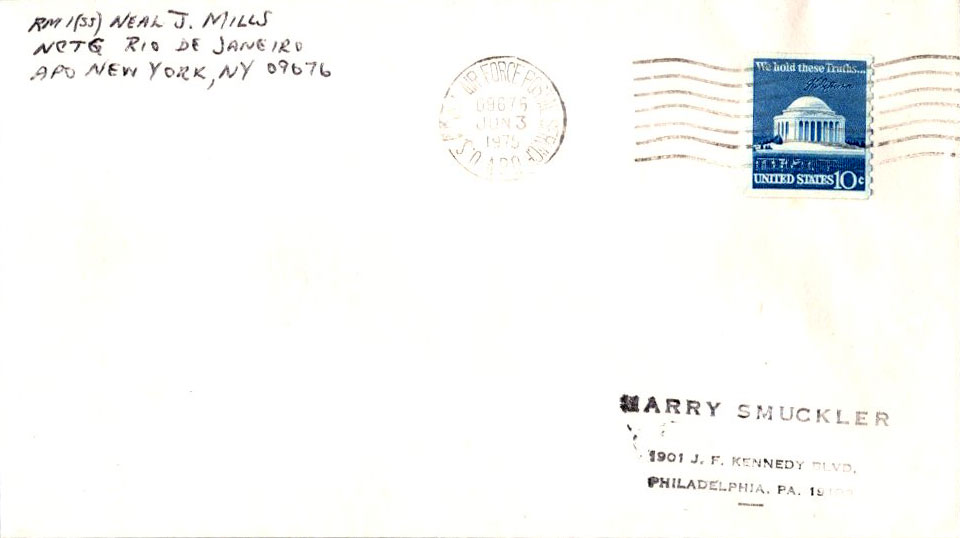 RM1(SS) NEAL J. MILLS
NCTG RIO DE JANEIRO
APO NEW YORK, NY 09676
AIR FORCE POSTAL
09676
JUN 3
1975
APO
We hold these Truths...
UNITED STATES 10c
HARRY SMUCKLER
1901 J. F. KENNEDY BLVD.
PHILADELPHIA, PA.